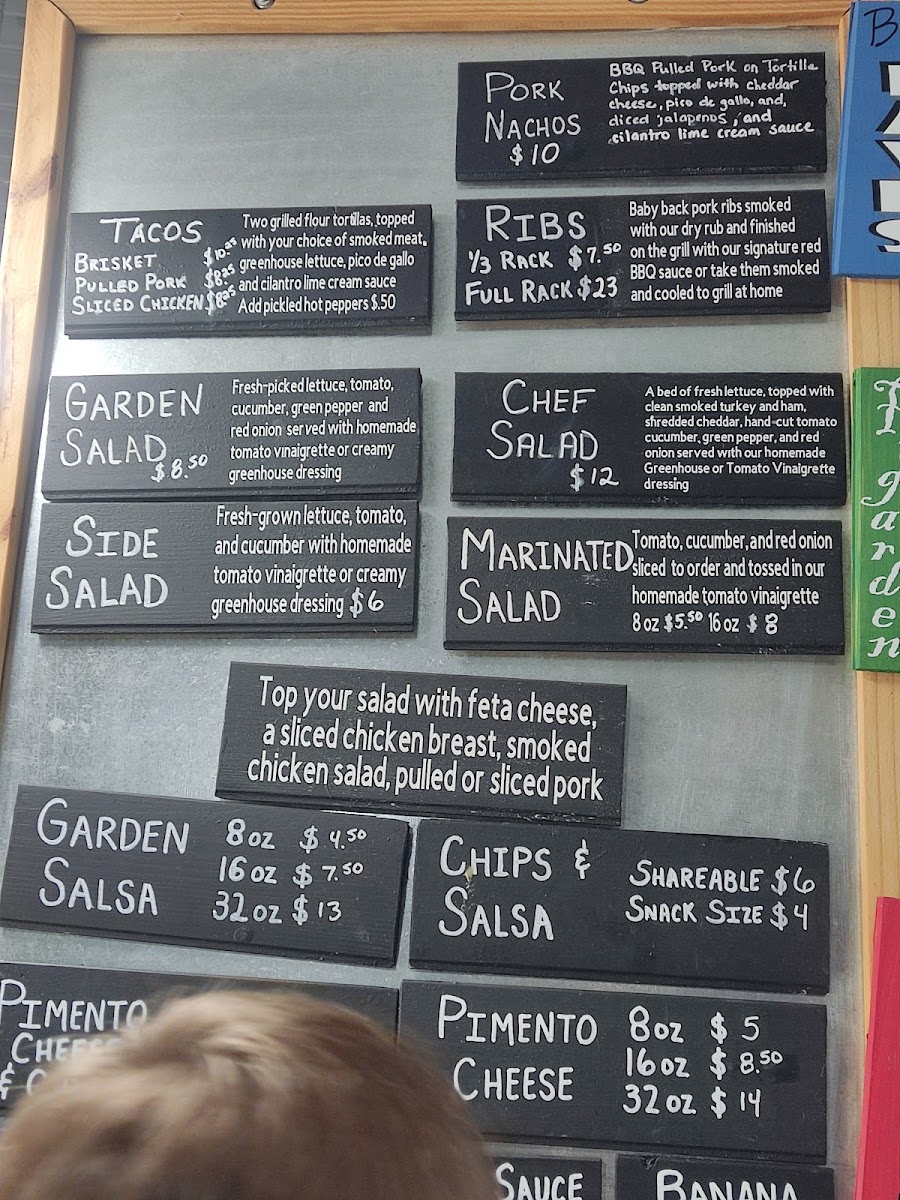 PORK
NACHOS
$10
BBQ Pulled Pork on Tortilla
Chips topped with cheddar
cheese, pico de gallo, and,
diced jalapenos, and
cilantro lime cream sauce
TACOS
BRISKET $10.25
PULLED PORK $8.25
SLICED CHICKEN $8.25
Two grilled flour tortillas, topped
with your choice of smoked meat,
greenhouse lettuce, pico de gallo
and cilantro lime cream sauce
Add pickled hot peppers $.50
RIBS
1/3 RACK $7.50
FULL RACK $23
Baby back pork ribs smoked
with our dry rub and finished
on the grill with our signature red
BBQ sauce or take them smoked
and cooled to grill at home
GARDEN
SALAD
$8.50
Fresh-picked lettuce, tomato,
cucumber, green pepper and
red onion served with homemade
tomato vinaigrette or creamy
greenhouse dressing
CHEF
SALAD
$12
A bed of fresh lettuce, topped with
clean smoked turkey and ham,
shredded cheddar, hand-cut tomato
cucumber, green pepper, and red
onion served with our homemade
Greenhouse or Tomato Vinaigrette
dressing
SIDE
SALAD
Fresh-grown lettuce, tomato,
and cucumber with homemade
tomato vinaigrette or creamy
greenhouse dressing $6
MARINATED
SALAD
Tomato, cucumber, and red onion
sliced to order and tossed in our
homemade tomato vinaigrette
8 oz $5.50 16 oz $8
Top your salad with feta cheese,
a sliced chicken breast, smoked
chicken salad, pulled or sliced pork
GARDEN
SALSA
8oz $4.50
16oz $7.50
32oz $13
CHIPS &
SALSA
SHAREABLE $6
SNACK SIZE $4
PIMENTO
CHEESE
&
PIMENTO
CHEESE
8oz $5
16oz $8.50
32oz $14
SAUCE
BANANA
garden